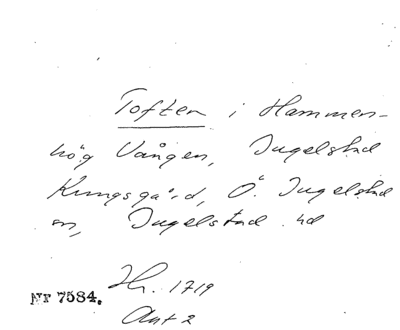 Toften i Hammen-
hög Vången, Ingelstad
Kungsgård, Ö. Ingelstad
sn, Ingelstad hd
Hr. 1719
Akt 2
Nr 7584.